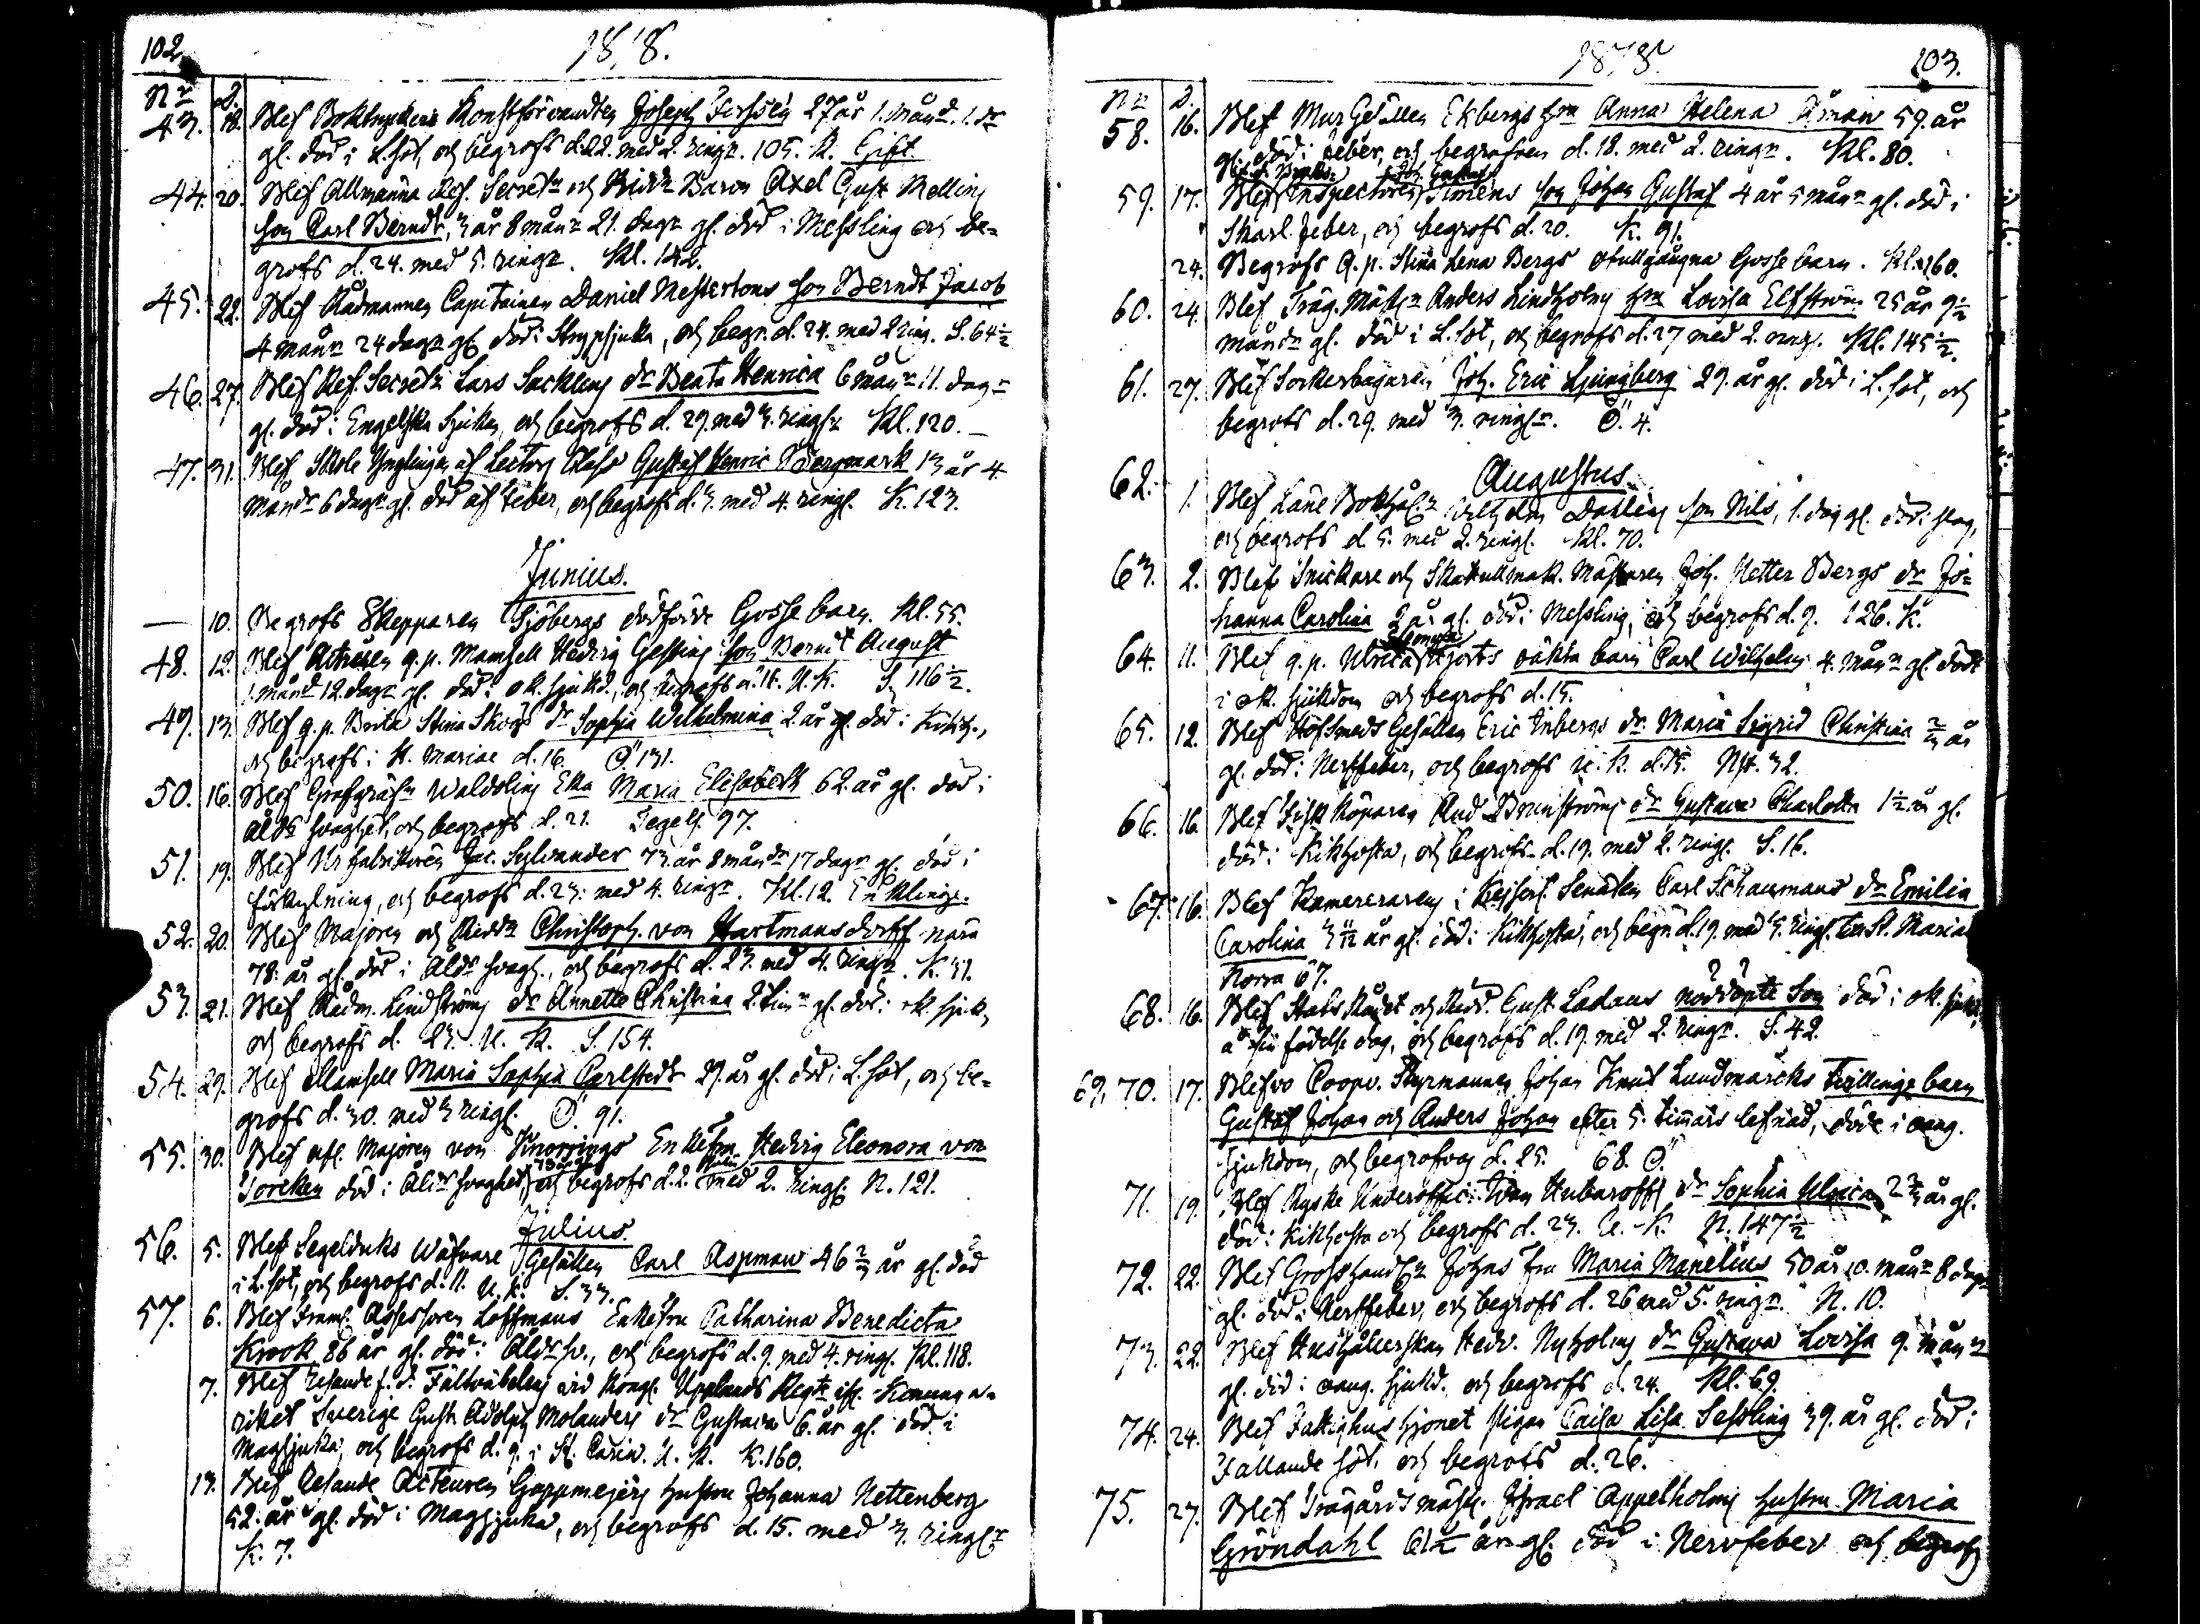 102.
1818.
Nr D.
43. 18. Blef Boktryckeri Konstförvandten Joseph 27 år 1. månd. 1. dr
gl. död i L. sot, och begrofs d. 22. med 2. ringn. 105. K. Gift.
44. 20. Blef Allmänna Secretn och Riddn Baron Axel Gust Mellins
son Carl Berndt, 3 år 8 månr 21. dagr gl. död i Messling och be=
grofs d. 24. med 5. ringn. Kl. 142.
45. 22. Blef Rådmannen Capitainen Daniel Nestertons son Berndt Jacob
4 månr 24 dagr gl. död i Strypsjuka, och begr. d. 24. med 2 ring. S. 64½
46. 27. Blef Ref. Secretn Lars Sacklens dr Beata Henrica 6 månr 11. dagr
gl. död i Engelska Sjukan, och begrofs d. 29. med 3. ringr Kl. 120.
47. 31. Blef Skole Ynglingen af Lectors Class Gustaf Henric Bergmark 13 år 4
månr 6 dagr gl. död af feber, och begrofs d. 3. med 4. ringl. K. 123.
Junius.
— 10. Begrofs Skepparen Sjöbergs dödfödde Gosse barn. Kl. 55.
48. 12. Blef q. p. Mamsell Hedvig Gessing son Berndt August
1. månd 12. dagr gl. död i ok. sjukd., och begrofs d. 16. U. K. S. 116½.
49. 13. Blef q. p. Brita Stina Skogs dr Sophia Wilhelmina 2. år gl. död i Kikh.,
och begrofs i St. Mariae d. 16. Ö. 131.
50. 16. Blef Grofgräfn Waldsling Eka Maria Elisabeth 62. år gl. död i
Åldr svaghet, och begrofs d. 21. Tegels. 97.
51. 19. Blef Ur fabrikören Jac. Sylvander 73. år 8 månr 17 dagr gl. död i
förkylning, och begrofs d. 23. med 4. ringr. Kl. 12. Enklingr.
52. 20. Blef Majoren och Riddn Christoph. von Hartmansdorff nära
78. år gl. död i Åldr svagh., och begrofs d. 23. med 4. ringn. K. 31.
53. 21. Blef Rådm. Lindströms dr Annette Christina 2 timr gl. död i ok. sjuk,
och begrofs d. 23. U. K. S. 154.
54. 29. Blef Mamsell Maria Sophia Carlstedt 29. år gl. död i L. sot, och be=
grofs d. 30. med 3 ringl. Ö. 91.
55. 30. Blef afl. Majoren von Knorrings Enkefru Hedvig Eleonora von
Torcken död i Åldr svaghet, och begrofs d. 2. Julii med 2. ringl. N. 121.
Julius.
56. 5. Blef Segelduks Wäfvare Gesällen Carl Aspman 46 ⅔ år gl. död
i L. sot, och begrofs d. 11. U. K. S. 33.
57. 6. Blef framl. Assessoren Loffmans Enkefru Catharina Benedicta
Krook 86 år gl. död i Åldr sv., och begrofs d. 9. med 4. ringl. Kl. 118.
7. Blef resande f. d. Fältväbelens vid Kongl. Upplands Regte ifr. Konunga=
riket Sverige Gust. Adolph Molanders dr Gustava 6. år gl. död i
Magsjuka, och begrofs d. 9. i St. Carin. U. K. K. 160.
13. Blef Resande Acteuren Goppmejers hustru Johanna Nettenberg
52. år gl. död i Magsjuka, och begrofs d. 15. med 3. ringl.
K. 7.
1818.
103.
Nr D.
58. 16. Blef Mur Gesällen Ekbergs hru Anna Helena Åman 59. år
gl. död i feber, och begrofven d. 18. med 2. ringr. Kl. 80.
59. 17. Blef Inspectoren Simens son Johan Gustaf 4 år 5 månr gl. död i
Skarl. feber, och begrofs d. 20. K. 91.
24. Begrofs Q. p. Stina Lena Bergs ofullgångna Gosse barn. Kl. 160.
60. 24. Blef Träg. Mästn Anders Lindholms hru Lovisa Elfström 25 år 9½
månr gl. död i L. sot, och begrofs d. 27 med 2. ring. Kl. 145½.
61. 27. Blef Sockerbagaren Joh. Eric Ljungberg 29. år gl. död i L. sot, och
begrofs d. 29. med 3. ringln. Ö. 4.
Augustus.
62. 1. Blef Läne Bokhåln Wilhelm Dahlens son Nils, 1. dag gl. död i slag,
och begrofs d. 5. med 2. ringl. Kl. 70.
63. 2. Blef Snickare och Skatullmak. Mästaren Joh. Petter Bergs dr Jo=
hanna Carolina 2 år gl. död i Messling, och begrofs d. 9. 126. K.
64. 11. Blef q. p. Ulrica Hjorts oäkta barn Carl Wilhelm 4. månr gl. död
i ok. sjukdom och begrofs d. 15.
65. 12. Blef Hofsmeds Gesällen Eric Enbergs dr Maria Sigrid Christina ⅔ år
gl. död i Nerffeber, och begrofs U. K. d. 15. Nst. 32.
66. 16. Blef Fisk Köparen And Brunströms dr Gustava Charlotta 1½ år gl.
död i Kikhosta, och begrofs d. 19. med 2. ringl. S. 16.
67. 16. Blef Kamereraren i Kejserl. Senaten Carl Schaumans dr Emilia
Carolina 3 11/12 år gl. död i Kikhosta, och begr. d. 19. med 5. ringl. ur St. Maria
Norra 67.
68. 16. Blef Stats Rådet och Ridd. Gust. Ladaus noddöpte Son död i ok. sjukd.
a sin födelse dag, och begrofs d. 19. med 2. ringr. S. 42.
69, 70. 17. Blefvo Coopv. Styrmannen Johan Knut Lundmarcks tvillinge barn
Gustaf Johan och Anders Johan efter 5. timmars lefnad, döde i oang.
sjukdom, och begrofvos d. 25. 68. Ö.
71. 19. Blef Ryske Underoffic. Iwan Hubaroffs dr Sophia Ulrica 2 ⅔ år gl.
död i Kikhosta och begrofs d. 23. U. K. N. 147½
72. 22. Blef Grosshandln Johns fru Maria Manelius 50 år 10. månr 8 dagr
gl. död i Nerffeber, och begrofs d. 26 med 5. ringr. N. 10.
73. 22. Blef Hushållerskan Hedv. Nyholms dr Gustava Lovisa 9. månr
gl. död i oang. sjukd. och begrofs d. 24. Kl. 69.
74. 24. Blef Fattighus hjonet pigan Caisa Lisa Sessling 39. år gl. död i
Fallande sot, och begrofs d. 26.
75. 27. Blef Trägårdsmäst. Israel Appelholms hustru Maria
Gröndahl 61½ år gl. död i Nervfeber och begrofs